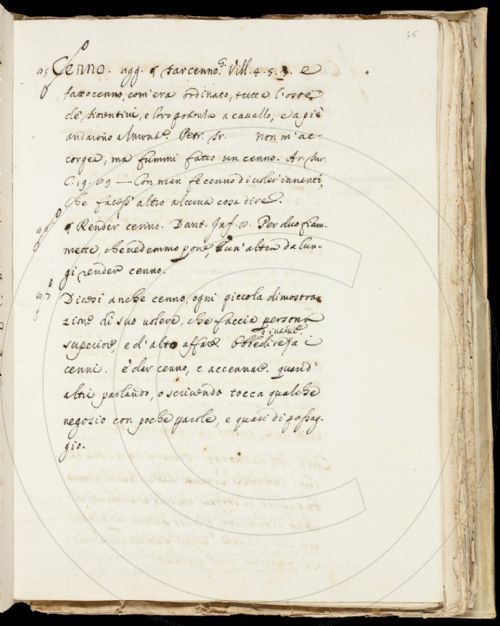 36
95 Cenno. agg. ¶ Far cenno. Vill. 4. 5. 3. e
fatto cenno, com'era ordinato, tutta l'oste
de' fiorentini, e loro podesta a cavallo, e a piè
andarono Petr. Sr. Non m'ac-
corgea, ma fummi fatto un cenno. Ar. fur.
C. 19. 109 — Con man fe cenno di voler innanti,
che facess' altro alcuna cosa dire.
96 ¶ Render cenno. Dant. Inf. 8. Per duo fiam-
mette, che vedemmo porre, E un'altra da lun-
gi render cenno.
97 Dicesi anche cenno, ogni piccola dimostra-
zione di suo volere, che faccia persona
superiore, e d'alto affare. Obbedire a i
cenni. è dar cenno, e accennare. quand'
altri parlando, o scrivendo tocca qualche
negozio con poche parole, e quasi di passag-
gio.